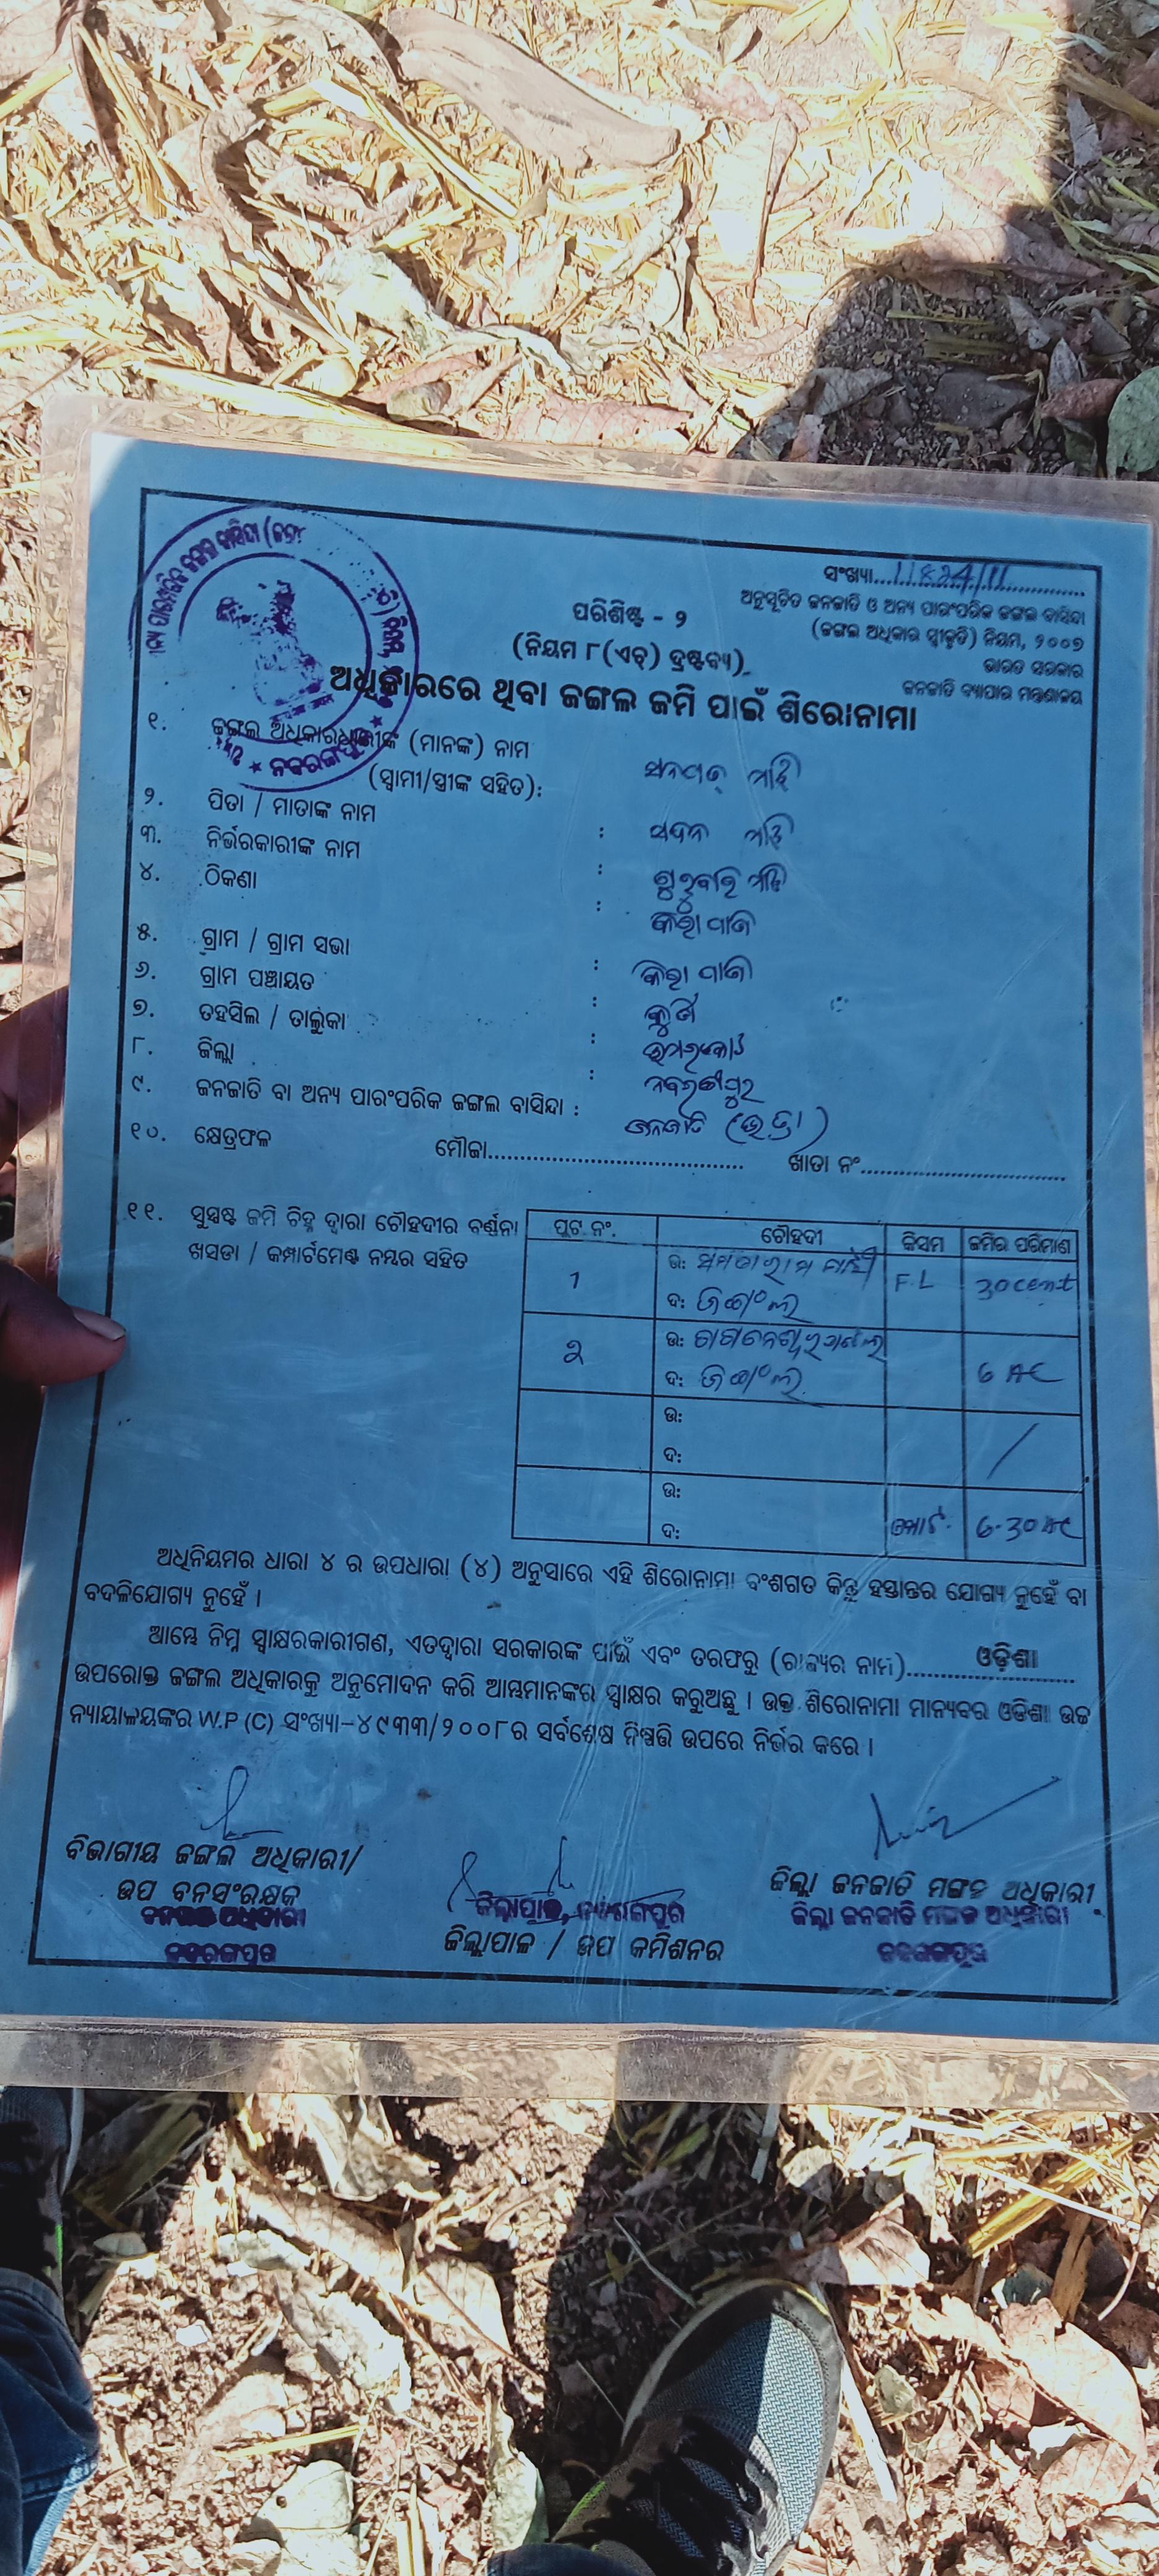 ସଂଖ୍ୟା...11824/11
ଅନୁସୂଚିତ ଜନଜାତି ଓ ଅନ୍ୟ ପାରଂପରିକ ଜଙ୍ଗଲ ବାସିନ୍ଦା
(ଜଙ୍ଗଲ ଅଧିକାର ସ୍ୱୀକୃତି) ନିୟମ, ୨୦୦୭
ଭାରତ ସରକାର
ଜନଜାତି ବ୍ୟାପାର ମନ୍ତ୍ରଣାଳୟ
ପରିଶିଷ୍ଟ - ୨
(ନିୟମ ୮(ଏଚ୍) ଦ୍ରଷ୍ଟବ୍ୟ)
ଅଧିକାରରେ ଥିବା ଜଙ୍ଗଲ ଜମି ପାଇଁ ଶିରୋନାମା
୧. ଜଙ୍ଗଲ ଅଧିକାରଧାରୀଙ୍କ (ମାନଙ୍କ) ନାମ
(ସ୍ୱାମୀ/ସ୍ତ୍ରୀଙ୍କ ସହିତ):
୨. ପିତା / ମାତାଙ୍କ ନାମ :
୩. ନିର୍ଭରକାରୀଙ୍କ ନାମ :
୪. ଠିକଣା :
୫. ଗ୍ରାମ / ଗ୍ରାମ ସଭା :
୬. ଗ୍ରାମ ପଞ୍ଚାୟତ :
୭. ତହସିଲ / ତାଲୁକା : ଉମରକୋଟ
୮. ଜିଲ୍ଲା : ନବରଙ୍ଗପୁର
୯. ଜନଜାତି ବା ଅନ୍ୟ ପାରଂପରିକ ଜଙ୍ଗଲ ବାସିନ୍ଦା : ଜନଜାତି
୧୦. କ୍ଷେତ୍ରଫଳ ମୌଜା........................ ଖାତା ନଂ........................
୧୧. ସୁସ୍ପଷ୍ଟ ଜମି ଚିହ୍ନ ଦ୍ୱାରା ଚୌହଦୀର ବର୍ଣ୍ଣନା
ଖସଡା / କମ୍ପାର୍ଟମେଣ୍ଟ ନମ୍ବର ସହିତ
ପ୍ଲଟ ନଂ. ଚୌହଦୀ କିସମ ଜମିର ପରିମାଣ
1 ଉ: F.L 30 cent
ଦ: ଜଙ୍ଗଲ
2 ଉ: 6 AC
ଦ: ଜଙ୍ଗଲ
ଉ:
ଦ:
ଉ:
ଦ: ମୋଟ 6.30 AC
ଅଧିନିୟମର ଧାରା ୪ ର ଉପଧାରା (୪) ଅନୁସାରେ ଏହି ଶିରୋନାମା ବଂଶଗତ କିନ୍ତୁ ହସ୍ତାନ୍ତର ଯୋଗ୍ୟ ନୁହେଁ ବା
ବଦଳିଯୋଗ୍ୟ ନୁହେଁ ।
ଆମ୍ଭେ ନିମ୍ନ ସ୍ୱାକ୍ଷରକାରୀଗଣ, ଏତଦ୍ୱାରା ସରକାରଙ୍କ ପାଇଁ ଏବଂ ତରଫରୁ (ରାଜ୍ୟର ନାମ)........ଓଡ଼ିଶା........
ଉପରୋକ୍ତ ଜଙ୍ଗଲ ଅଧିକାରକୁ ଅନୁମୋଦନ କରି ଆମ୍ଭମାନଙ୍କର ସ୍ୱାକ୍ଷର କରୁଅଛୁ । ଉକ୍ତ ଶିରୋନାମା ମାନ୍ୟବର ଓଡିଶା ଉଚ୍ଚ
ନ୍ୟାୟାଳୟଙ୍କର W.P (C) ସଂଖ୍ୟା-୪୯୩୩/୨୦୦୮ର ସର୍ବଶେଷ ନିଷ୍ପତ୍ତି ଉପରେ ନିର୍ଭର କରେ ।
ବିଭାଗୀୟ ଜଙ୍ଗଲ ଅଧିକାରୀ/
ଉପ ବନସଂରକ୍ଷକ
ନବରଙ୍ଗପୁର
ଜିଲ୍ଲାପାଳ, ନବରଙ୍ଗପୁର
ଜିଲ୍ଲାପାଳ / ଉପ କମିଶନର
ଜିଲ୍ଲା ଜନଜାତି ମଙ୍ଗଳ ଅଧିକାରୀ
ଜିଲ୍ଲା ଜନଜାତି ମଙ୍ଗଳ ଅଧିକାରୀ
ନବରଙ୍ଗପୁର